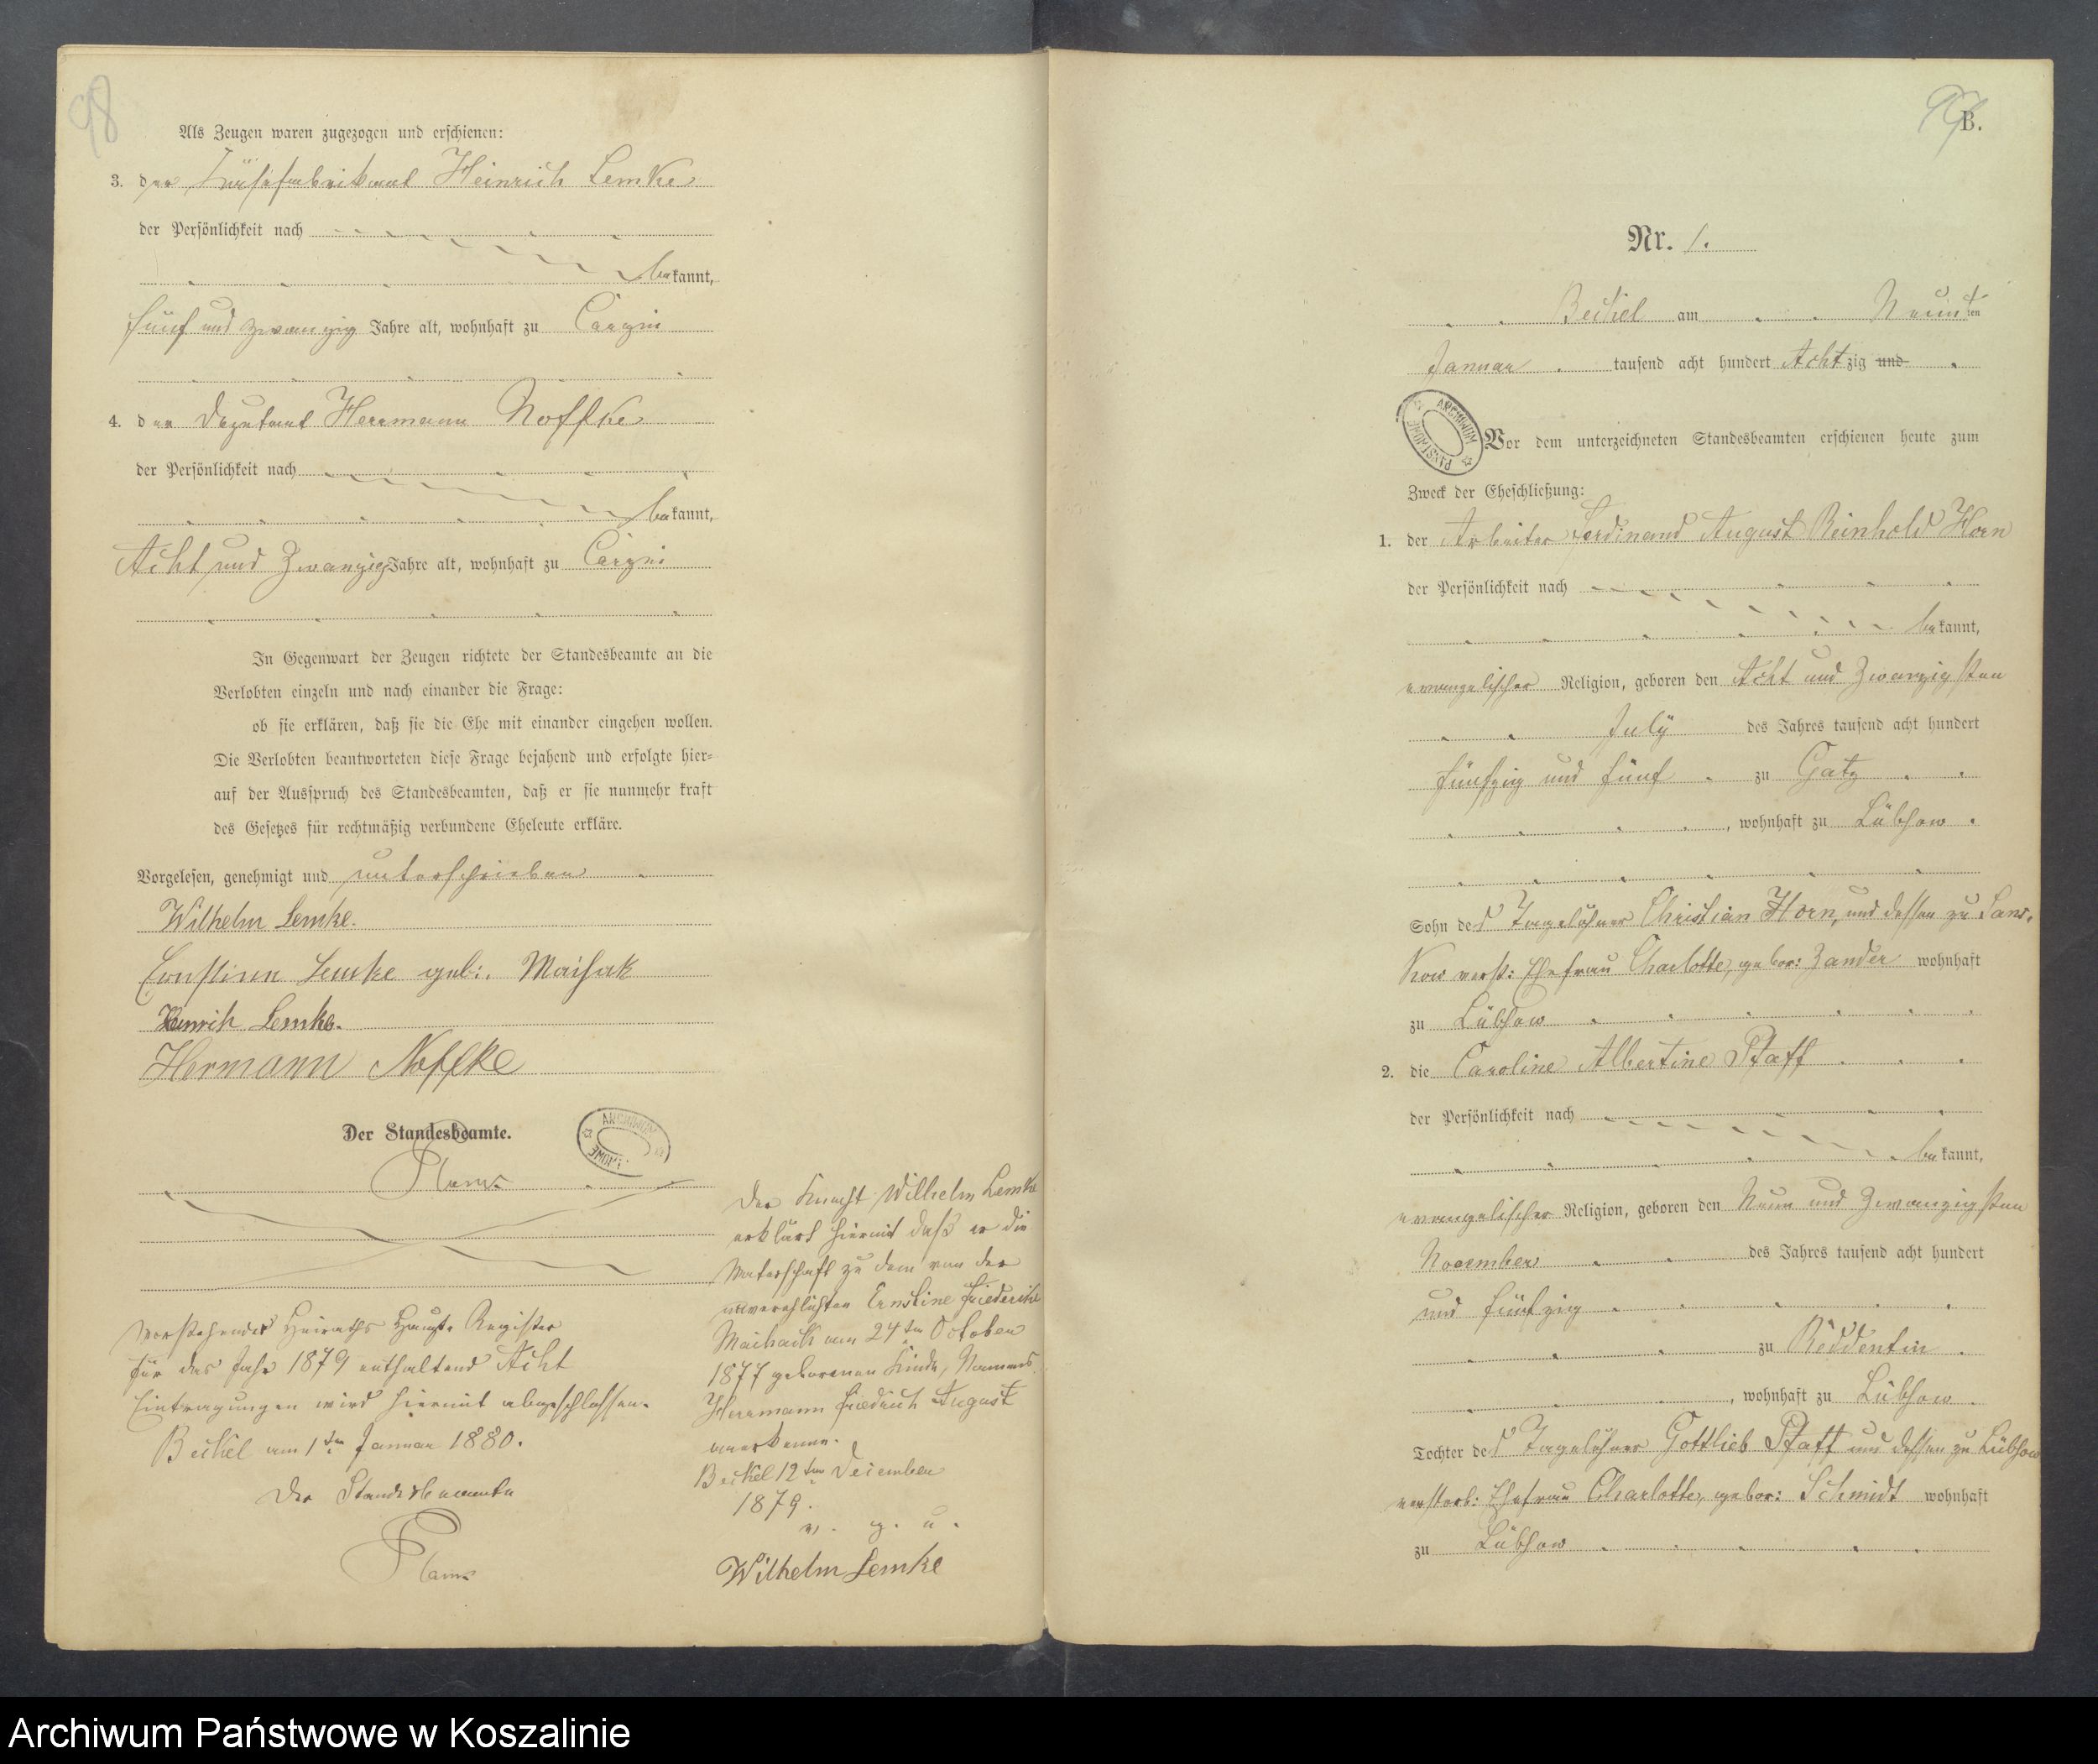 98
Als Zeugen waren zugezogen und erschienen:
3. der Käsefabrikant Heinrich Lemke
der Persönlichkeit nach
bekannt,
fünf und zwanzig Jahre alt, wohnhaft zu Cargin
4. der Deputant Herrmann Noffke
der Persönlichkeit nach
bekannt,
Acht und Zwanzig Jahre alt, wohnhaft zu Cargin
In Gegenwart der Zeugen richtete der Standesbeamte an die
Verlobten einzeln und nach einander die Frage:
ob sie erklären, daß sie die Ehe mit einander eingehen wollen.
Die Verlobten beantworteten diese Frage bejahend und erfolgte hier-
auf der Ausspruch des Standesbeamten, daß er sie nunmehr kraft
des Gesetzes für rechtmäßig verbundene Eheleute erkläre.
Vorgelesen, genehmigt und unterschrieben
Wilhelm Lemke.
Ernstine Lemke geb: Maihak
Heinrich Lemke.
Hermann Noffke
Der Standesbeamte.
Vorstehendes Heiraths Haupt Register
für das Jahr 1879 enthaltend Acht
Eintragungen wird hiermit abgeschlossen.
Beckel am 1ten Januar 1880.
Der Standesbeamte
Der Knecht Wilhelm Lemke
erklärt hiermit daß er die
Vaterschaft zu dem von der
unverehlichten Ernstine Friederike
Maihack am 24ten October
1877 geborenen Kinde, Namens
Herrmann Friedrich August
anerkenne.
Beckel 12ten December
1879.
v. g. u.
Wilhelm Lemke
99
B.
Nr. 1.
Beckel am Neunten
Januar tausend acht hundert Achtzig und
ARCHIWUM PAŃSTWOWE
Vor dem unterzeichneten Standesbeamten erschienen heute zum
Zweck der Eheschließung:
1. der Arbeiter Ferdinand August Reinhold Horn
der Persönlichkeit nach
bekannt,
evangelischer Religion, geboren den Acht und Zwanzigsten
July des Jahres tausend acht hundert
fünfzig und fünf zu Gatz
, wohnhaft zu Lübsow
Sohn des Tagelöhner Christian Horn, und dessen zu Lans-
kow verst: Ehefrau Charlotte, gebor: Zander wohnhaft
zu Lübsow
2. die Caroline Albertine Pfaff
der Persönlichkeit nach
bekannt,
evangelischer Religion, geboren den Neun und Zwanzigsten
November des Jahres tausend acht hundert
und fünfzig
zu Reddentin
, wohnhaft zu Lübsow
Tochter des Tagelöhner Gottlieb Pfaff und dessen zu Lübsow
verstorb: Ehefrau Charlotte, gebor: Schmidt wohnhaft
zu Lübsow
Archiwum Państwowe w Koszalinie